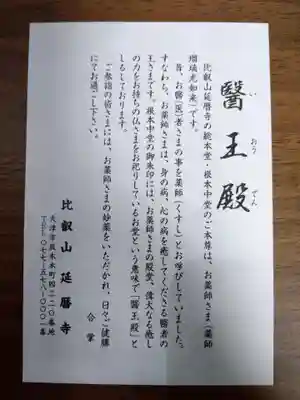 醫王殿
い
おう
でん
比叡山延暦寺の総本堂・根本中堂のご本尊は、お薬師さま（薬師
瑠璃光如来）です。
昔、お醫（医）者さまの事を薬師（くすし）とお呼びしていました。
すなわち、お薬師さまは、身の病、心の病を癒してくださる醫者の
王さまです。根本中堂の御朱印には、お薬師さまの殿堂、偉大なる癒し
の力をお持ちの仏さまをお祀りしているお堂という意味で「醫王殿」と
しるしております。
ご参詣の皆さまには、お薬師さまの妙薬をいただかれ、日々ご健勝
にてお過ごし下さい。
合掌
比叡山 延暦寺
大津市坂本本町四二二〇番地
〇七七-五七八-〇〇〇一番